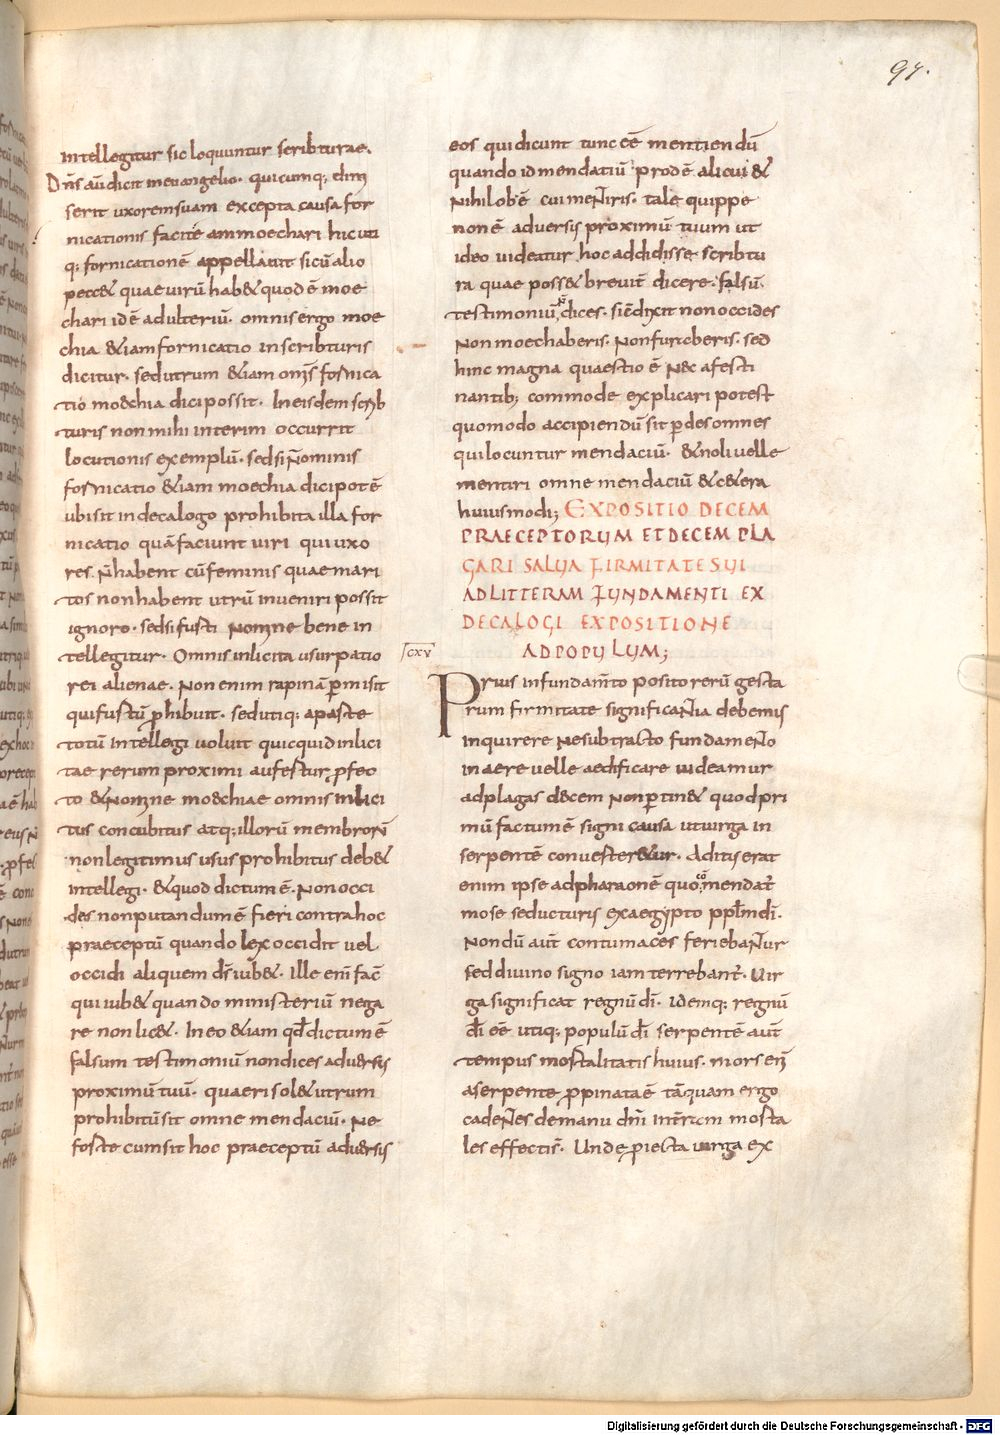 97.
intellegitur sic loquuntur scribturae.
Dn̄s aut̄ dicit in euangelio. quicumq; dim
serit uxorem suam excepta causa for
nicationis facit eam moechari hic uti
q; fornicationē appellauit sicū alio
pecc& quae uirū hab& quod ē moe
chari id ē adulteriū. omnis ergo moe
chia &iam fornicatio in scribturis
dicitur. sed utrum &iam om̄s fornica
tio moechia dici possit. In eisdem scrib
turis non mihi interim occurrit
locutionis exemplū. sed si n̄ ominis
fornicatio &iam moechia dici pot ē
ubi sit in decalogo prohibita illa for
nicatio quā faciunt uiri qui uxo
res n̄ habent cū feminis quae mari
tos non habent utrū inueniri possit
ignoro. sed si furti nomine bene in
tellegitur. Omnis inlicita usurpatio
rei alienae. Non enim rapinā p̄misit
qui furtū prohibuit. sed utiq; a parte
totū intellegi uoluit quicquid inlici
tae rerum proximi aufertur profec
to & nomine moechiae omnis inlici
tus concubitus atq; illorū membrorū
non legitimus usus prohibitus deb&
intellegi. & quod dictum ē. Non occi
des non putandum ē fieri contra hoc
praeceptū quando lex occidit uel
occidi aliquem d̄s iub&. Ille enī fac̄
qui iub& quando ministeriū nega
re non lic&. In eo &iam qd̄ dictum ē
falsum testimoniū non dices aduersus
proximū tuū. quaeri sol& utrum
prohibitū sit omne mendaciū. Ne
forte cum sit hoc praeceptū aduersus
eos qui dicunt tunc eē mentiendū
quando id mendatiū prod ē alicui &
nihil ob ē cui mentiris. tale quippe
non ē aduersus proximū tuum ut
ideo uideatur hoc addidisse scribtu
ra quae poss& breuit̄ dicere. falsū
testimoniū n̄ dices. sic dixit non occides
Non moechaberis. Non furaberis. sed
hinc magna quaestio ē nec a festi
nantib; commode explicari potest
quomodo accipiendū sit pdes omnes
qui locuntur mendaciū. & noli uelle
mentiri omne mendaciū & c&era
huiusmodi; EXPOSITIO DECEM
PRAECEPTORUM ET DECEM PLA
GARI SALUA FIRMITATE SUI
AD LITTERAM FUNDAMENTI EX
DECALOGI EXPOSITIONE
AD POPULUM;
CXV
Prius in fundam̄to posito rerū gesta
rum firmitate significantia debemus
inquirere ne subtracto fundamento
in aere uelle aedificare uideamur
ad plagas decem non ptin& quod pri
mū factum ē signi causa ut uirga in
serpentē conuerter&ur. Aditus erat
enim ipse ad pharaonē quo mendat̄
mose seducturus ex aegypto ppl̄m di.
Nondū aut̄ contumaces feriebantur
sed diuino signo iam terrebant̄. Uir
ga significat regnū dī. Idemq; regnū
dī eē utiq; populū dī serpentē aut̄
tempus mortalitatis huius. mors enī
a serpente propinata ē tāquam ergo
cadentes de manu dn̄i in terram morta
les effecti s̄. Unde proiecta uirga ex
Digitalisierung gefördert durch die Deutsche Forschungsgemeinschaft - DFG